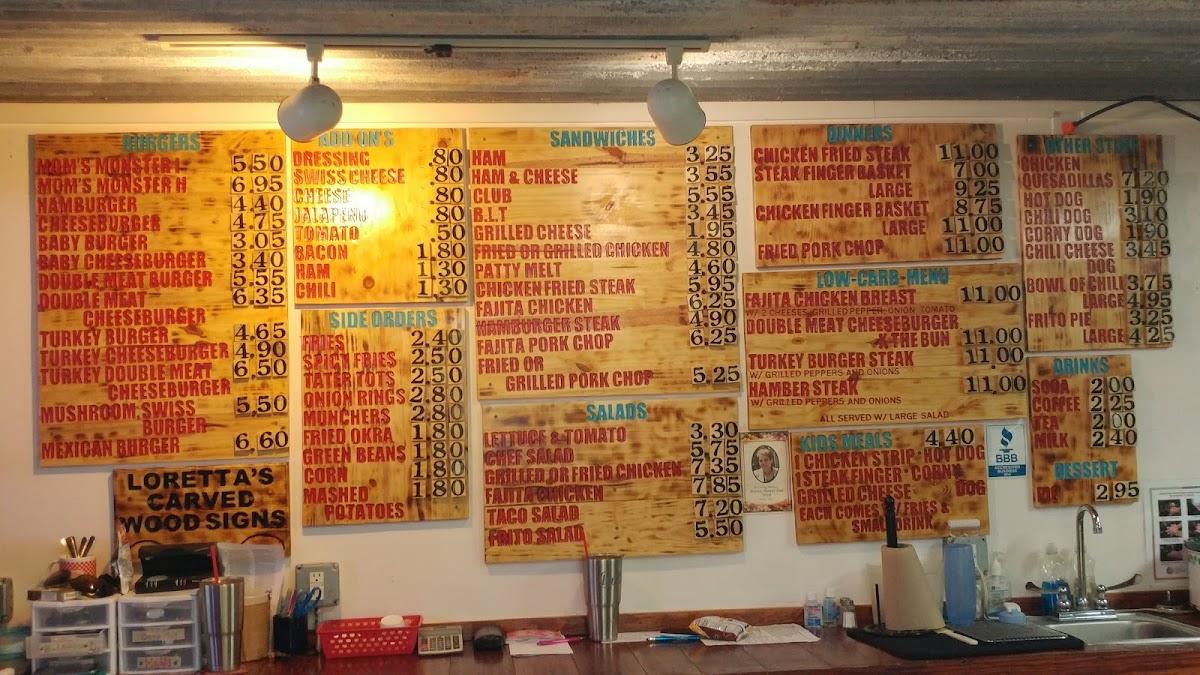 BURGERS
MOM'S MONSTER 5.50
MOM'S MONSTER H 6.95
HAMBURGER 4.40
CHEESEBURGER 4.75
BABY BURGER 3.05
BABY CHEESEBURGER 3.40
DOUBLE MEAT BURGER 5.55
DOUBLE MEAT 6.35
CHEESEBURGER
TURKEY BURGER 4.65
TURKEY CHEESEBURGER 4.90
TURKEY DOUBLE MEAT 6.50
CHEESEBURGER
MUSHROOM SWISS 5.50
BURGER
MEXICAN BURGER 6.60
LORETTA'S
CARVED
WOOD SIGNS
ADD ON'S
DRESSING .80
SWISS CHEESE .80
CHEESE .80
JALAPENO .80
TOMATO .50
BACON 1.80
HAM 1.30
CHILI 1.30
SIDE ORDERS
FRIES 2.40
SPICY FRIES 2.50
TATER TOTS 2.50
ONION RINGS 2.80
MUNCHERS 2.80
FRIED OKRA 1.80
GREEN BEANS 1.80
CORN 1.80
MASHED 1.80
POTATOES
SANDWICHES
HAM 3.25
HAM & CHEESE 3.55
CLUB 5.55
B.L.T 3.45
GRILLED CHEESE 1.95
FRIED OR GRILLED CHICKEN 4.80
PATTY MELT 4.60
CHICKEN FRIED STEAK 5.95
FAJITA CHICKEN 6.25
HAMBURGER STEAK 4.90
FAJITA PORK CHOP 6.25
FRIED OR
GRILLED PORK CHOP 5.25
SALADS
LETTUCE & TOMATO 3.30
CHEF SALAD 5.75
GRILLED OR FRIED CHICKEN 7.35
FAJITA CHICKEN 7.85
TACO SALAD 7.20
FRITO SALAD 5.50
DINNERS
CHICKEN FRIED STEAK 11.00
STEAK FINGER BASKET 7.00
LARGE 9.25
CHICKEN FINGER BASKET 8.75
LARGE 11.00
FRIED PORK CHOP 11.00
LOW-CARB MENU
FAJITA CHICKEN BREAST 11.00
W/ 2 CHEESES, GRILLED PEPPER, ONION, TOMATO
DOUBLE MEAT CHEESEBURGER
X THE BUN 11.00
TURKEY BURGER STEAK 11.00
W/ GRILLED PEPPERS AND ONIONS
STEAK 11.00
W/ GRILLED PEPPERS AND ONIONS
ALL SERVED W/ LARGE SALAD
KIDS MEALS 4.40
1 CHICKEN STRIP · HOT DOG
1 STEAK FINGER · CORNY
GRILLED CHEESE DOG
EACH COMES W/ FRIES &
SMALL DRINK
BBB
ACCREDITED
BUSINESS
OTHER STUFF
CHICKEN
QUESADILLAS 7.20
HOT DOG 1.90
CHILI DOG 3.10
CORNY DOG 1.90
CHILI CHEESE 3.45
DOG
BOWL OF CHILI 3.75
LARGE 4.95
FRITO PIE 3.25
LARGE 4.25
DRINKS
SODA 2.00
COFFEE 2.25
TEA 2.00
MILK 2.40
DESSERT
2.95